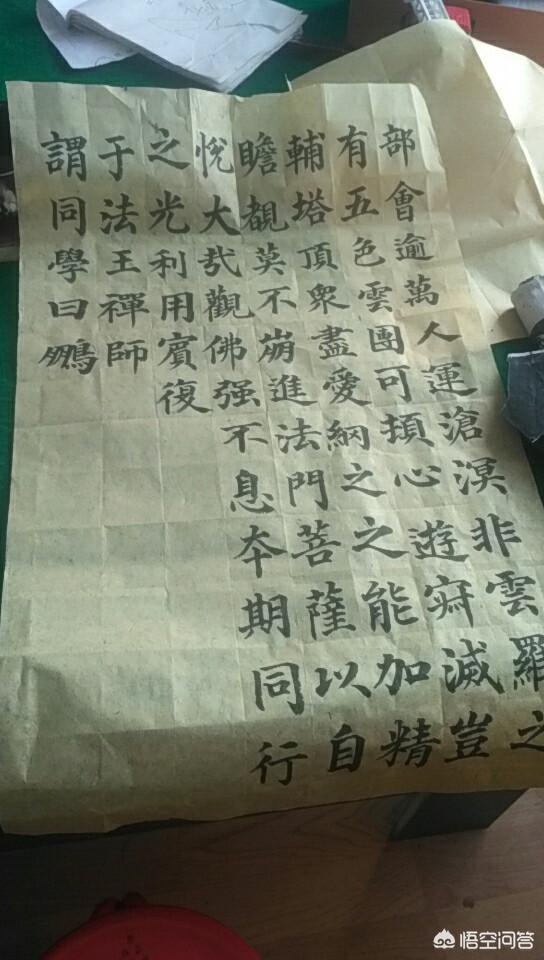 部會逾萬人運滄溟非雲羅之
有五色雲團可頓心遊寂滅豈
輔塔頂衆盡愛網之之能加精
瞻覩莫不崩進法門菩薩以自
悅大哉觀佛强不息夲期同行
之光利用賓復
于法王禪師
謂同學曰鵬
悟空问答